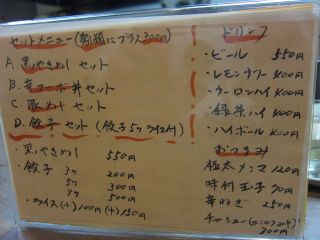 セットメニュー(麺類にプラス300円)
A. 黒やきめしセット
B. 辛マーボ丼セット
C. 豚めしセット
D. 餃子セット(餃子5ケ ライス付)
・黒やきめし 550円
・餃子 3ケ 200円
5ケ 300円
9ケ 500円
・ライス(小)100円(大)150円
ドリンク
・ビール 550円
・レモンサワー 400円
・ウーロンハイ 400円
・緑茶ハイ 400円
・ハイボール 400円
おつまみ
極太メンマ 120円
味付玉子 70円
辛ねぎ 250円
チャーシュー
300円